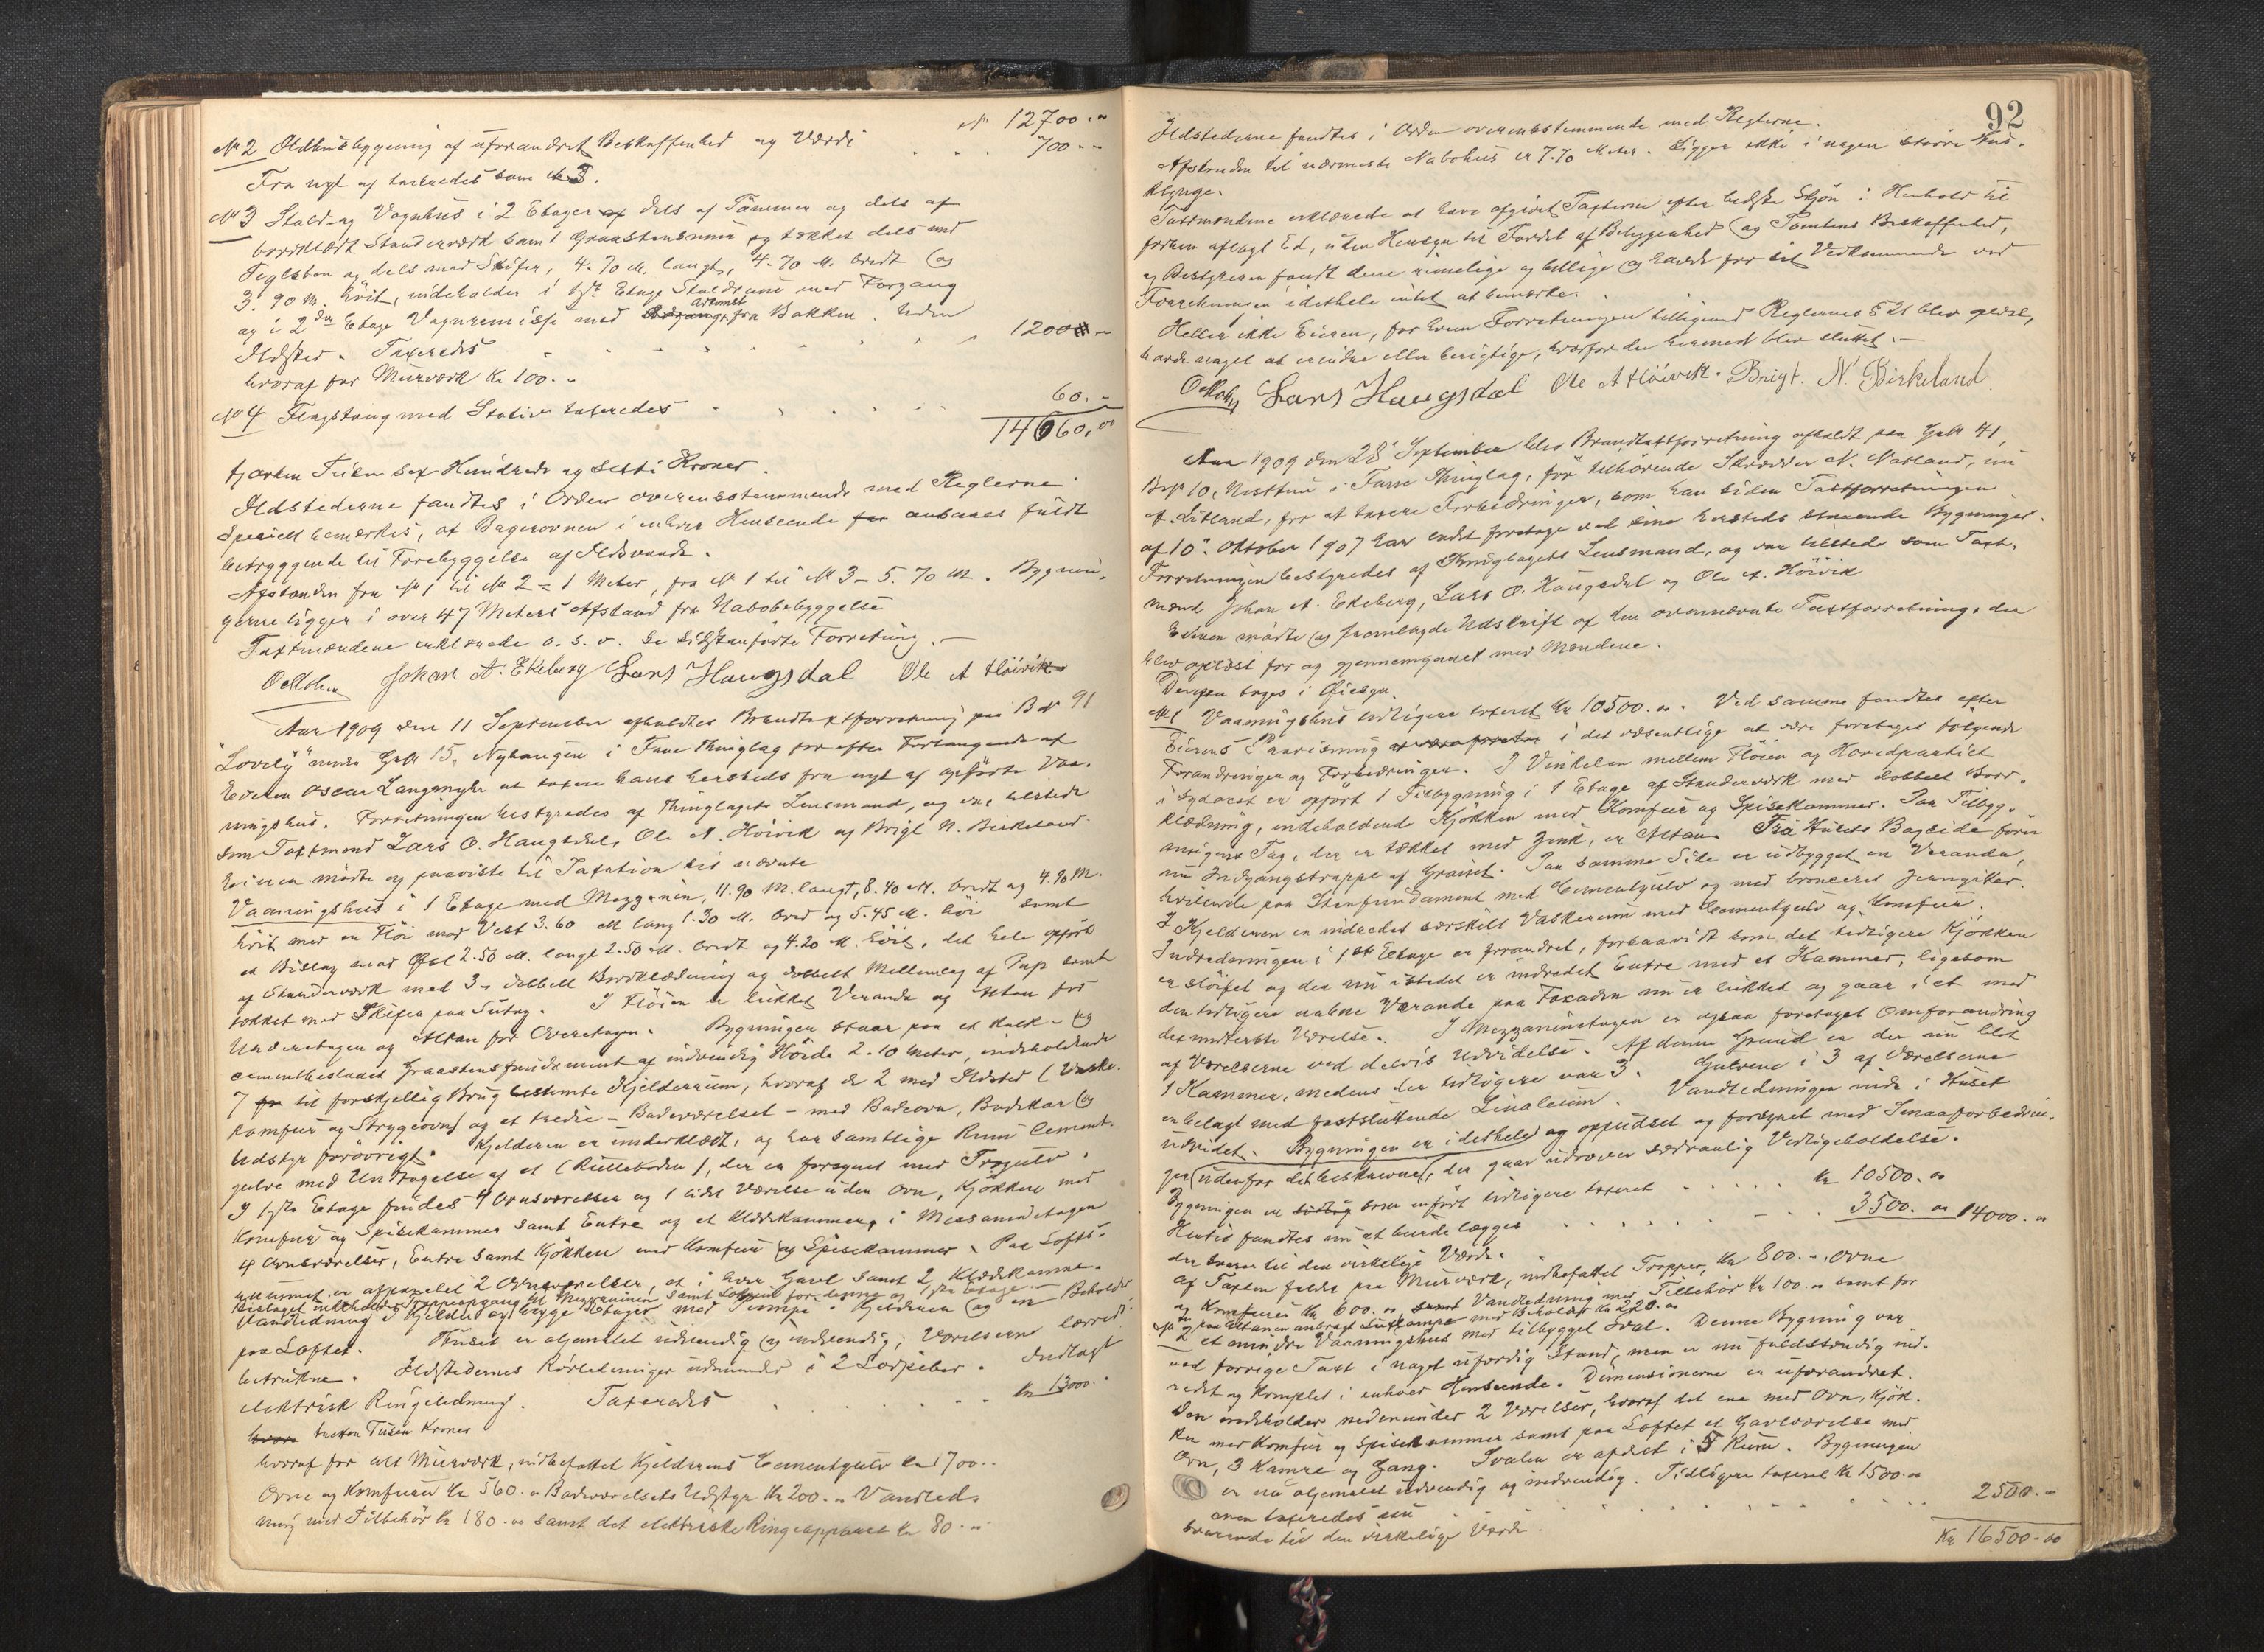 № 12700."
№ 2 Ildhusbygning af uforandret Beskaffenhed og Værdi . . . "700.-
Fra nyt af taxeredes som № 3.
№ 3 Stald- og Vognhus i 2 Etager dels af Tömmer og dels af
bordklædt Standerværk samt Graastensmur og tækket dels med
Teglsten og dels med Skifer, 4.70 M. langt, 4.70 M. bredt og
3.90 M. höit, indeholder i 1ste Etage Staldrum med Forgang
og i 2den Etage Vognremisse med Adkomst fra Bakken. Uden
Ildsted. Taxeredes . . . . . . 1200 -
hvoraf for Murværk Kr 100.-
№ 4 Flagstang med Stativ taxeredes . . . . . 60.-
14660,00
fjorten Tusen sex Hundrede og Sexti Kroner.
Ildstederne fandtes i Orden overensstemmende med Reglerne
Specielt bemærkes, at Bagerovnen i enhver Henseende ansaaes fuldt
betryggende til Forebyggelse af Ildsvaade.
Afstanden fra № 1 til № 2 = 1 Meter, fra № 1 til № 3 - 5.70 M. Bygnin-
gerne ligger i over 47 Meters Afstand fra Nabobebyggelse
Taxtmændene erklærede o.s.v. se sidstanförte Forretning.-
Johan A. Ekeberg Lars Haugsdal Ole A Höivik
Aar 1909 den 11 September afholdtes Brandtaxtforretning paa B № 91
"Lovely" under G№ 15, Nyhaugen i Fane Thinglag for efter Forlangende af
Eieren Oscar Langemyhr at taxere hans hersteds fra nyt af opförte Vaa-
ningshus. Forretningen bestyredes af Thinglagets Lensmand, og var tilstede
som Taxtmænd Lars O. Haugsdal, Ole A. Höivik og Brigt N. Birkeland
Eieren mödte og paaviste til Taxation sit nævnte
Vaaningshus i 1 Etage med Mezzanin, 11.90 M. langt, 8.40 M. bredt og 4.90 M.
höit med en Flöi mod Vest 3.60 M lang 1.30 M. bred og 5.45 M. höi samt
et Bislag mod Öst 2.50 M. langt 2.50 M. bredt og 4.20 M. höit, det hele opfört
af Standerværk med 3" dobbelt Bordklædning og dobbelt Mellemlag af Pap samt
tækket med Skifer paa Sutag. I Flöien er lukket Veranda og Altan for
Underetagen og Altan for Overetagen. Bygningen staar paa et Kalk- og
cementbeslaaet Graastensfundament af indvendig Höide 2.10 Meter, indeholdende
7 til forskjellig Brug bestemte Kjelderrum, hvoraf de 2 med Ildsted (Vaske-
komfur og Strygeovn) og et tredie - Badeværelset - med Badeovn, Badekar og
Udstyr forövrigt. Kjelderen er underklædt, og har samtlige Rum Cement-
gulve med Undtagelse af et (Rulleboden), der er forsynet med Trægulv.
I 1ste Etage findes 4 Ovnsværelser og 1 lidet Værelse uden Ovn, Kjökken med
Komfur og Spisekammer samt Entre og et Klædekammer, i Messaninetagen
4 Ovnsværelser, Entre samt Kjökken med Komfur og Spisekammer. Paa Lofts-
rummet er afpanelet 2 Ovnsværelser, et i hver Gavl samt 2 Klædekamme.
Bislaget indeholder Trappeopgang til Mezzaninen samt
Vandledning i Kjelder og begge Etager med Pumpe i Kjelderen og en Beholder
paa Loftet. Huset er oljemalet udvendig og indvendig, Værelserne lærred-
betrukne. Ildstedernes Rörledninger udmunder i 2 Sodpiber. Indlagt
elektrisk Ringeledning. Taxeredes . . . . . . Kr 13000.-
tretten Tusen Kroner
hvoraf for alt Murværk, indbefattet Kjelderens Cementgulv Kr 1700.-
Ovne og Komfurer Kr 560.- Badeværelsets Udstyr Kr 200.- Vandled-
ning med Tilbehör Kr 180.00 samt det elektriske Ringeapparat Kr 80.-
92
Ildstederne fandtes i Orden overensstemmende med Reglerne.
Afstanden til nærmeste Nabohus er 7.70 Meter. Ligger ikke i nogen större Hus-
klynge.
Taxtmændene erklærede at have afgivet Taxterne efter bedste Skjön i Henhold til
forhen aflagt Ed, uden Hensyn til Fordel af Beliggenhed og Tomtens Beskaffenhed,
og Bestyreren fandt dem rimelige og billige og havde for sit Vedkommende ved
Forretningen idethele intet at bemærke.
Heller ikke Eieren, for hvem Forretningen tilligemed Reglernes § 21 blev oplæst,
havde noget at erindre eller berigtige, hvorfor den hermed blev sluttet.-
Lars Haugsdal Ole A Höivik. Brigt. N. Birkeland.
Aar 1909 den 28 September blev Brandtaxtforretning afholdt paa G№ 41,
B№ 10, Nesttun i Fane Thinglag, för tilhörende Skrædder N. Natland, nu
af Litland, for at taxere Forbedringer, som han siden Taxtforretningen
af 10. Oktober 1907 har ladet foretage ved sine hersteds staaende Bygninger.
Forretningen bestyredes af Thinglagets Lensmand, og var tilstede som Taxt-
mænd Johan A. Ekeberg, Lars O. Haugsdal og Ole A. Höivik
Eieren mödte og fremlagde Udskrift af den ovennævnte Taxtforretning, der
blev oplæst for og gjennemgaaet med Mændene.
Derpaa toges i Öiesyn.
№ 1 Vaaningshus tidligere taxeret Kr 10500.00. Ved samme fandtes efter
Eierens Paavisning i det væsentlige at være foretaget fölgende
Forandringer og Forbedringer. I Vinkelen mellem Flöien og Hovedpartiet
i Sydöst er opfört 1 Tilbygning i 1 Etage af Standerværk med dobbelt Bord-
klædning, indeholdende Kjökken med Komfur og Spisekammer. Paa Tilbyg-
ningens Tag, der er tækket med Zink, er Altan. Fra Husets Bagside förer
nu Indgangstrappe af Granit. Paa samme Side er udbygget en Veranda,
hvilende paa Stenfundament med Cementgulv og med bronceret Jerngitter.
I Kjelderen er indredet særskilt Vaskerum med Cementgulv og Komfur.
Indredningen i 1ste Etage er forandret, forsaavidt som det tidligere Kjökken
er slöifet og der nu istedet er indredet Entre med et Kammer, ligesom
den tidligere aabne Veranda paa Facaden nu er lukket og gaar i et med
det inderste Værelse. I Mezzaninetagen er ogsaa foretaget Omforandring
af Værelserne ved delvis Udvidelse. Af denne Grund er der nu blot
1 Kammer, medens der tidligere var 3. Gulvene i 3 af Værelserne
er belagt med fastsluttende Linoleum. Vandledningen inde i Huset
udvidet. Bygningen er i det hele og oppudset og forsynet med Smaaforbedrin-
ger (udenfor det beskrevne), der gaar udover sædvanlig Vedligeholdelse.
Bygningen er som anfört tidligere taxeret . . . . . Kr 10500.00
Hertil fandtes nu at burde lægges . . . . . . 3500.00 14000.00
der svarer til den virkelige Værdi.
Af Taxten falder paa Murværk, indbefattet Trapper, Kr 800.-, Ovne
og Komfurer Kr 600.00, Vandledning med Tilbehör Kr 100.00 samt for
en paa Altanen anbragt med Beholder Kr 220.00
№ 2 et mindre Vaaningshus med tilbygget Sval. Denne Bygning var
ved forrige Taxt i noget ufærdig Stand, men er nu fuldstændig ind-
redet og komplet i enhver Henseende. Dimensionerne er uforandret.
Den indeholder nedenunder 2 Værelser, hvoraf det ene med Ovn, Kjök-
ken med Komfur og Spisekammer samt paa Loftet et Gavlværelse med
Ovn, 3 Kamre og Gang. Svalen er afdelt i 5 Rum. Bygningen
er nu oljemalet udvendig og indvendig. Tidligere taxeret Kr 1500.00
men taxeredes nu . . . . . . . . 2500.-
svarende til den virkelige Værdi.
Kr 16500.00